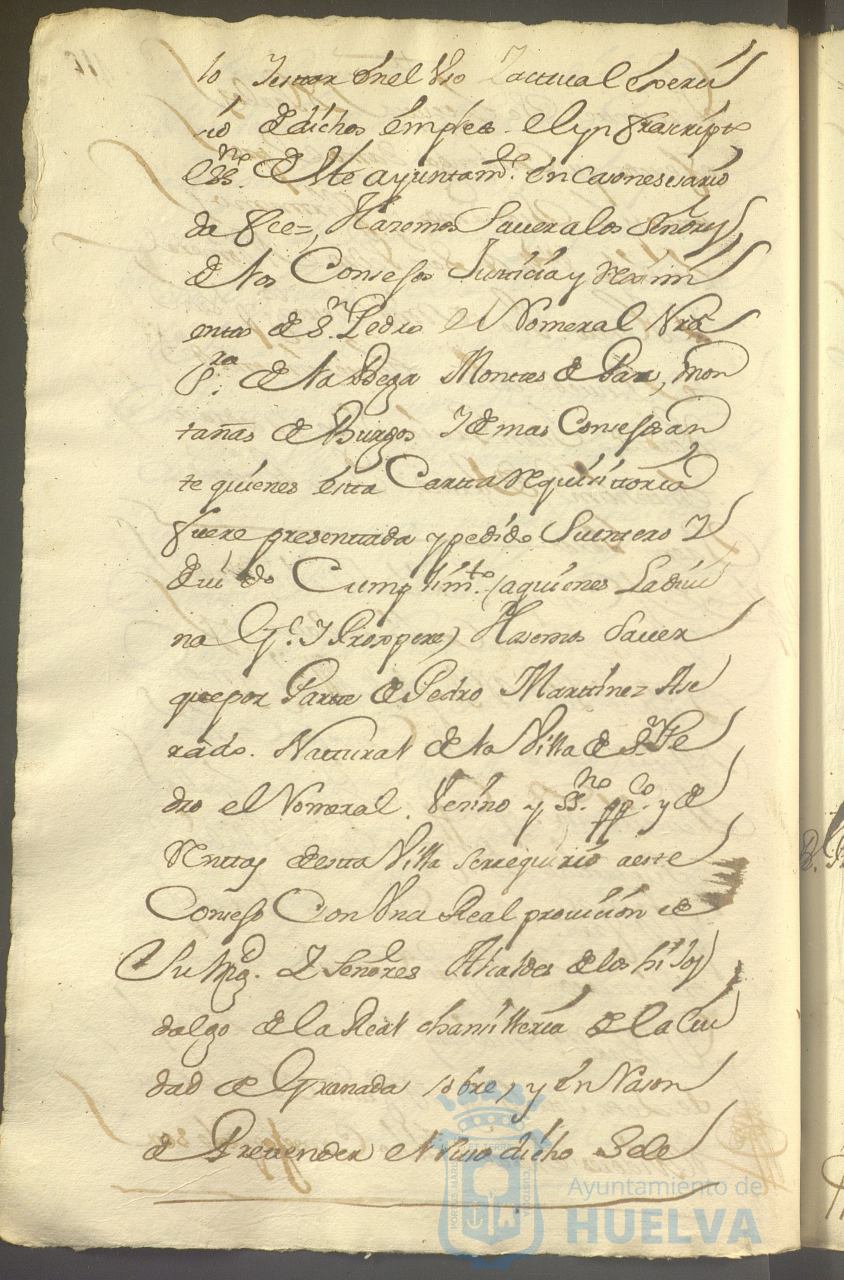 lo Testar en el Uso Y actual exerci
cio de dichos empleos. el ynfrascripto
Ess.no de Este ayuntam.to en caso nesesario
da fee=, Hasemos Saver a los Señores
de los Consejos Justicia y Rexim
entos de S.n Pedro el Romeral Nra
S.ra de la Bega Montes de Pax, mon
tañas de Burgos Y demas Consejos an
te quienes esta Cartta Requisittoria
fuere presenttada y pedido Su entero Y
devido Cumplim.to (a quienes La divi
na G.a Y Prospere) Hasemos Saver
que por Partte de Pedro Marttinez Ase
rado. Nattural de la Villa de S.n Pe
dro el Romeral. Vesino y Ss.no pp.co y de
Renttas de esta Villa se rrequirio a este
Consejo Con Una Real provicion de
Su Mag.d Y Señores Alcaldes de los hijos
dalgo de la Real chansilleria de la Ciu
dad de Granada sobre, y en Rason
de Prettender el Suso dicho Sele
Ayuntamiento de
HUELVA